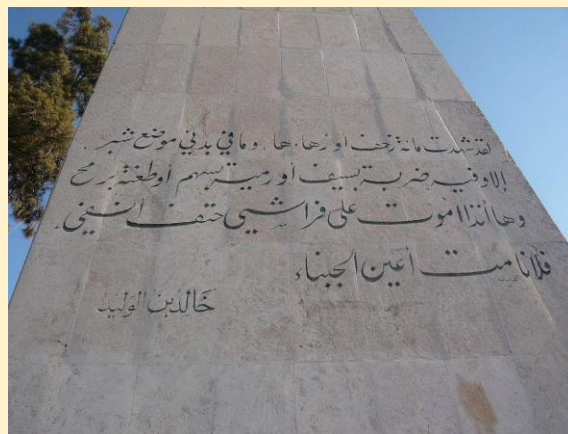 لقد شهدت مائة زحف أو زهاءها. وما في بدني موضع شبر.
إلا وفيه ضربة بسيف أو رمية بسهم أو طعنة برمح
وها أنذا أموت على فراشي حتف أنفي.
فلا نامت أعين الجبناء
خالد بن الوليد